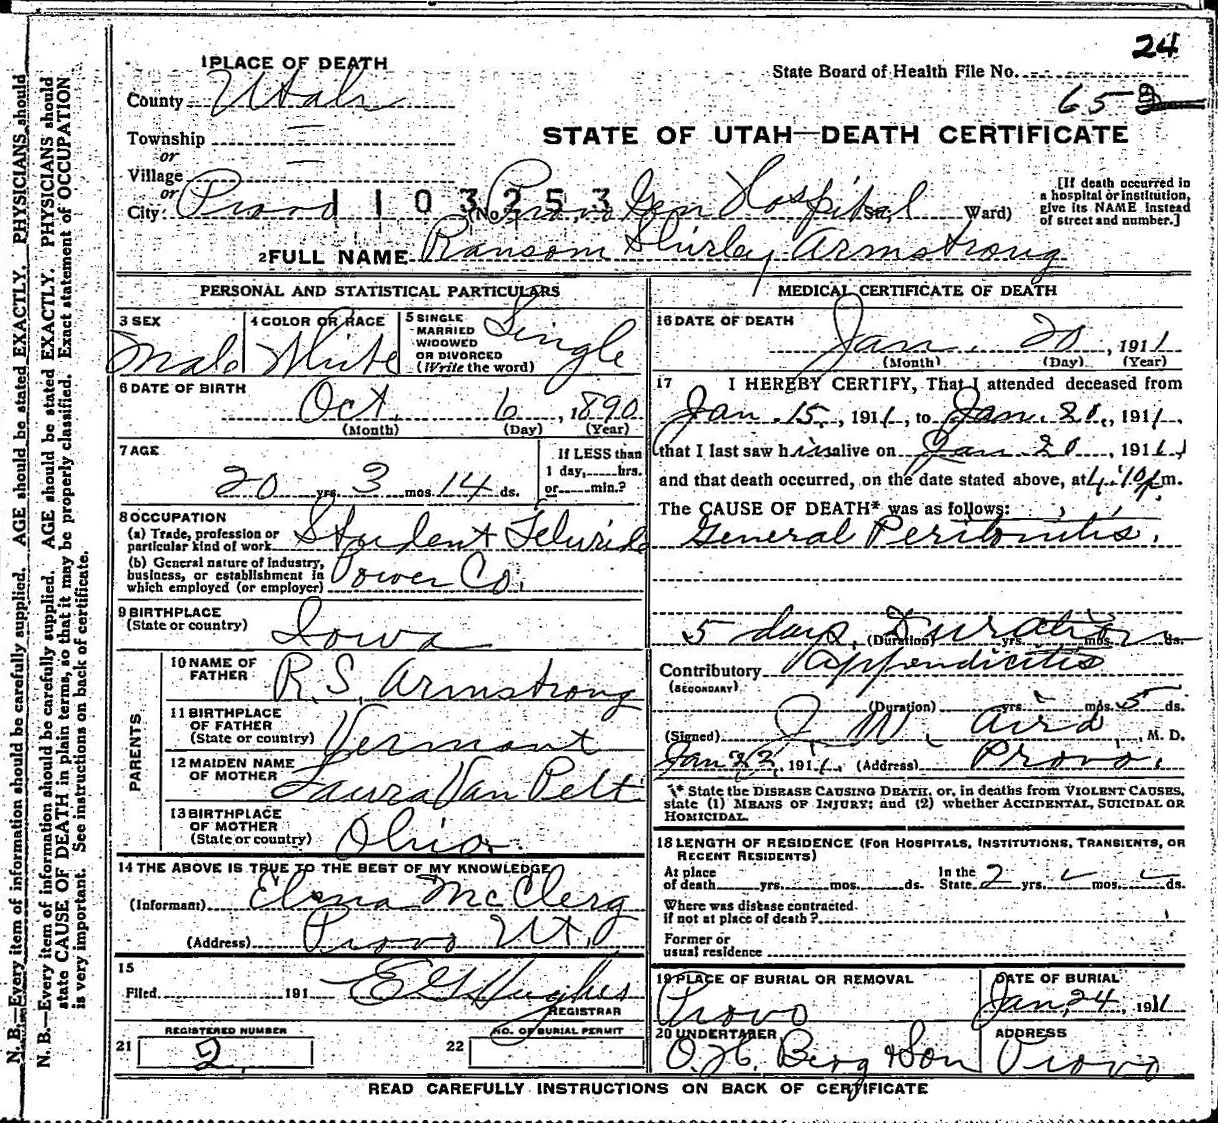 24
1 PLACE OF DEATH
State Board of Health File No.
County Utah
65
STATE OF UTAH—DEATH CERTIFICATE
Township —
or
Village —
or
1103253
City: Provo (No. Provo Gen Hospital St. Ward)
[If death occurred in
a hospital or institution,
give its NAME instead
of street and number.]
2 FULL NAME Ransom Shirley Armstrong
PERSONAL AND STATISTICAL PARTICULARS
3 SEX
Male
4 COLOR OR RACE
White
5 SINGLE
MARRIED
WIDOWED
OR DIVORCED
(Write the word)
Single
6 DATE OF BIRTH
Oct. 6, 1890
(Month) (Day) (Year)
7 AGE
20 yrs. 3 mos. 14 ds.
If LESS than
1 day,......hrs.
or......min.?
8 OCCUPATION
(a) Trade, profession or
particular kind of work Student Teluride
(b) General nature of industry,
business, or establishment in
which employed (or employer) Power Co.
9 BIRTHPLACE
(State or country) Iowa
PARENTS
10 NAME OF
FATHER R. S. Armstrong
11 BIRTHPLACE
OF FATHER
(State or country) Vermont
12 MAIDEN NAME
OF MOTHER Laura Van Pelt
13 BIRTHPLACE
OF MOTHER
(State or country) Ohio
14 THE ABOVE IS TRUE TO THE BEST OF MY KNOWLEDGE
(Informant) Elena McClerg
(Address) Provo Ut.
15
Filed 191 E G Hughes
REGISTRAR
REGISTERED NUMBER
21 2
NO. OF BURIAL PERMIT
22
MEDICAL CERTIFICATE OF DEATH
16 DATE OF DEATH
Jan. 20, 1911
(Month) (Day) (Year)
17 I HEREBY CERTIFY, That I attended deceased from
Jan. 15, 1911, to Jan. 20, 1911,
that I last saw him alive on Jan 20, 1911,
and that death occurred, on the date stated above, at 4:10 p.m.
The CAUSE OF DEATH* was as follows:
General Peritonitis.
5 days Duration
(Duration) yrs. mos. ds.
Contributory Appendicitis
(SECONDARY)
(Duration) yrs. mos. 5 ds.
(Signed) J. W. Aird, M. D.
Jan 22, 1911, (Address) Provo.
* State the DISEASE CAUSING DEATH, or, in deaths from VIOLENT CAUSES,
state (1) MEANS OF INJURY; and (2) whether ACCIDENTAL, SUICIDAL OR
HOMICIDAL.
18 LENGTH OF RESIDENCE (FOR HOSPITALS, INSTITUTIONS, TRANSIENTS, OR
RECENT RESIDENTS)
At place
of death yrs. mos. ds.
In the
State 2 yrs. mos. ds.
Where was disease contracted.
if not at place of death?
Former or
usual residence
19 PLACE OF BURIAL OR REMOVAL
Provo
DATE OF BURIAL
Jan, 24, 1911
20 UNDERTAKER
O. H. Berg & Son
ADDRESS
Provo
READ CAREFULLY INSTRUCTIONS ON BACK OF CERTIFICATE
N. B.—Every item of information should be carefully supplied. AGE should be stated EXACTLY. PHYSICIANS should
N. B.—Every item of information should be carefully supplied. AGE should be stated EXACTLY. PHYSICIANS should
state CAUSE OF DEATH in plain terms, so that it may be properly classified. Exact statement of OCCUPATION
is very important. See instructions on back of certificate.